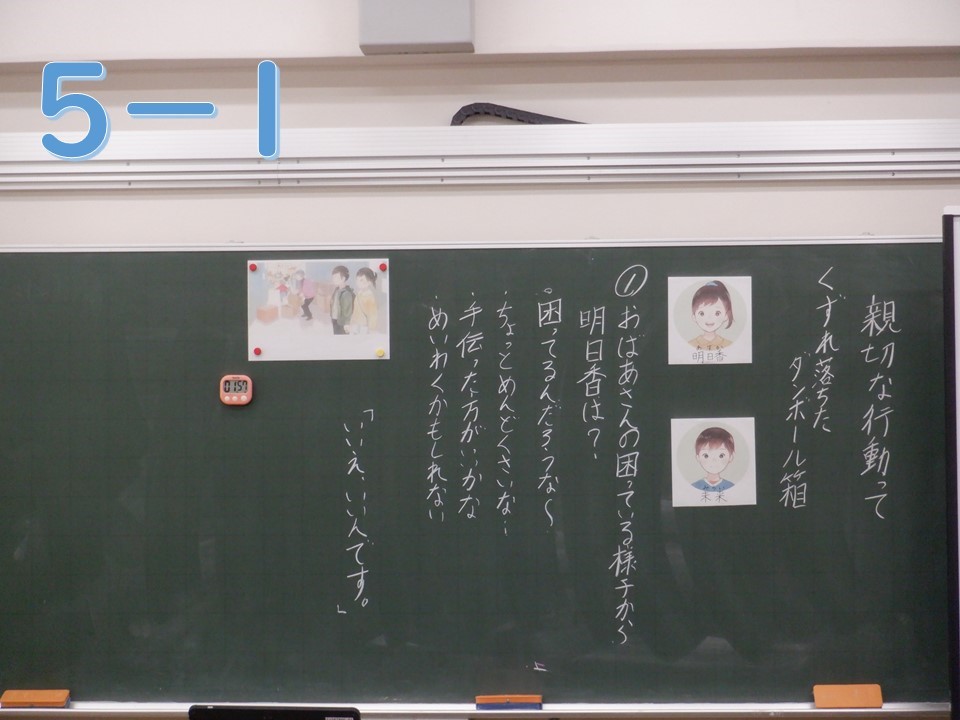 5－1
親切な行動って
くずれ落ちた
ダンボール箱
明日香
未来
①おばあさんの困っている様子から
明日香は？
・困ってるんだろうな～
・ちょっとめんどくさいな…
・手伝った方がいいかな
・めいわくかもしれない
「いいえ、いいんです。」